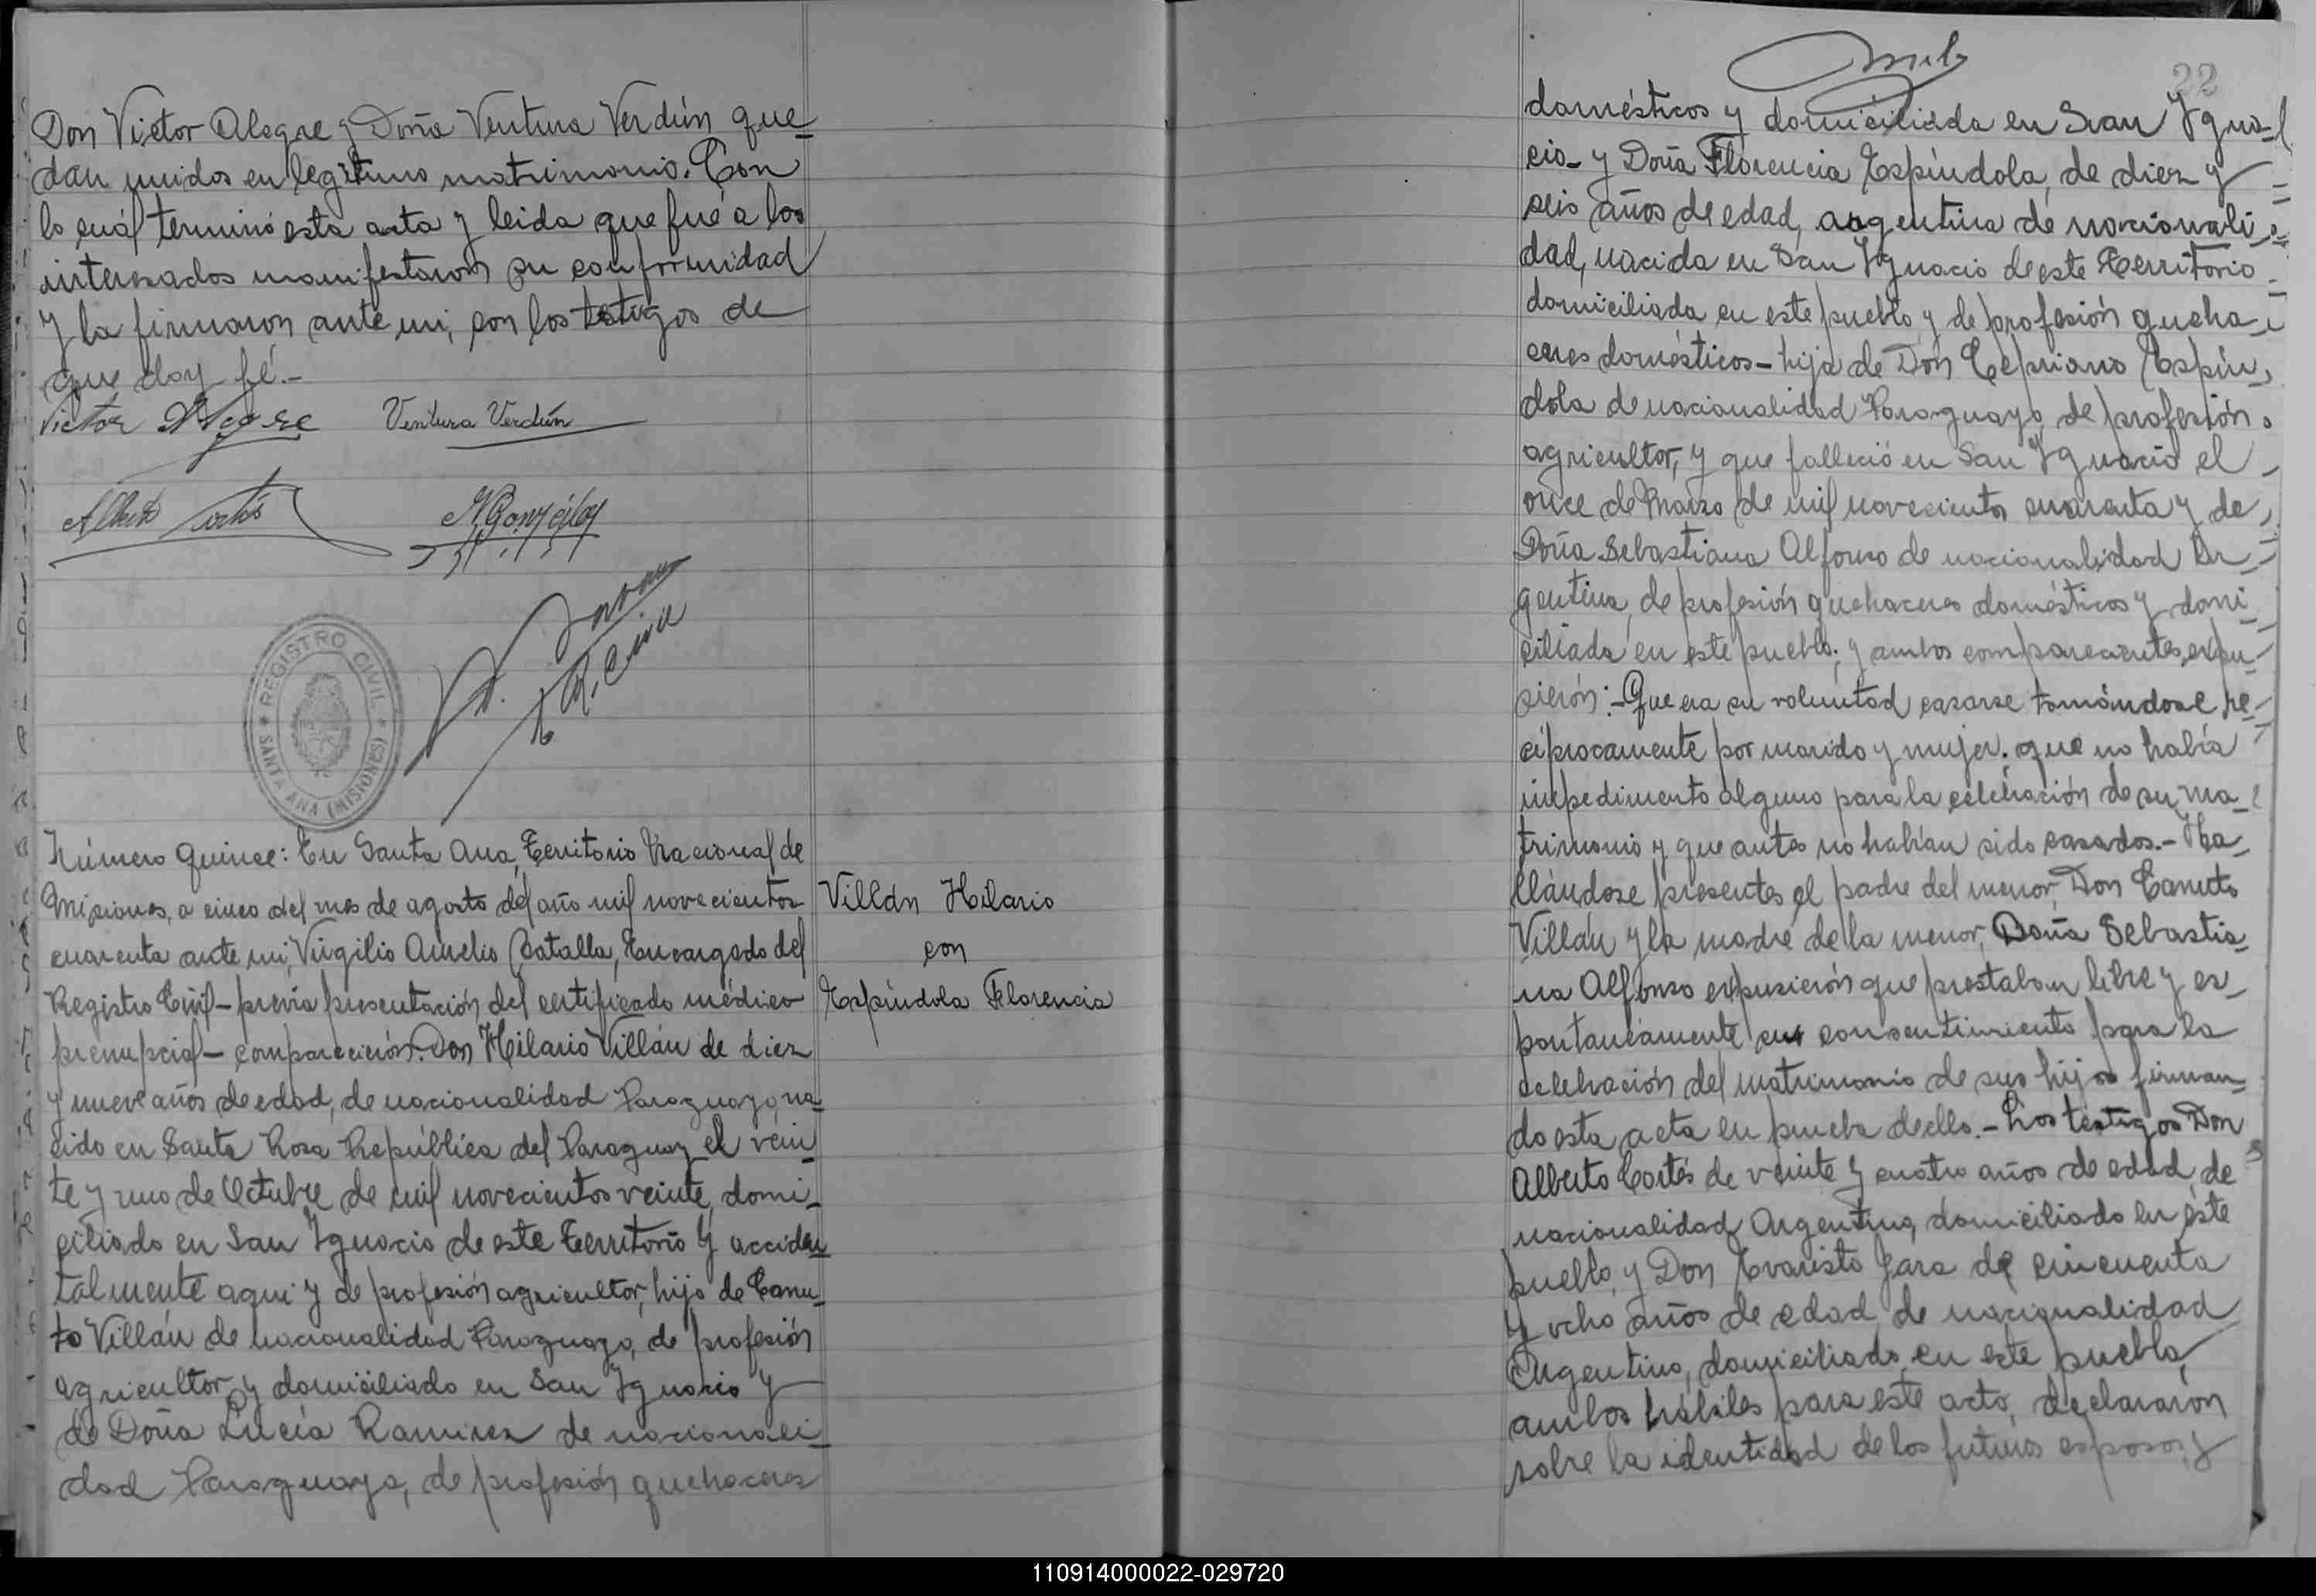 Don Victor Alegre y Doña Ventura Verdún que-
dan unidos en legitimo matrimonio. Con
lo cuál terminó esta acta y leida que fué a los
interesados manifestaron su conformidad
y la firmaron ante mi, con los testigos de
que doy fé.-
Victor Alegre Ventura Verdún
Alberto Cortés
R. Civil
REGISTRO CIVIL
SANTA ANA (MISIONES)
Número Quince: En Santa Ana, Territorio Nacional de
Misiones, a cinco del mes de agosto del año mil novecientos
cuarenta ante mi, Virgilio Aurelio Batalla, Encargado del
Registro Civil - previa presentación del certificado médico
prenupcial - comparecieron: Don Hilario Villán de diez
y nueve años de edad, de nacionalidad Paraguayo, na-
cido en Santa Rosa República del Paraguay el vein
te y uno de Octubre de mil novecientos veinte, domi-
ciliado en San Ignacio de este Territorio y acciden
talmente aqui y de profesión agricultor, hijo de Canu-
to Villán de nacionalidad Paraguayo, de profesión
agricultor y domiciliado en San Ignacio y
de Doña Lucía Ramirez de nacionali-
dad Paraguaya, de profesión quehaceres
Villán Hilario
con
Espíndola Florencia
22
domésticos y domiciliada en San Igna-
cio- y Doña Florencia Espíndola, de diez y
seis años de edad, argentina de nacionali-
dad, nacida en San Ignacio de este Territorio
domiciliada en este pueblo y de profesión queha-
ceres domésticos - hija de Don Cepriano Espín-
dola de nacionalidad Paraguayo, de profesión
agricultor, y que falleció en San Ignacio el
once de Marzo de mil novecientos cuarenta y de
Doña Sebastiana Alfonso de nacionalidad Ar-
gentina, de profesión quehaceres domésticos y domi
ciliada en este pueblo; y ambos comparecientes expu-
sieron:- Que era su voluntad casarse tomándose re-
ciprocamente por marido y mujer; que no había
impedimento alguno para la celebración de su ma-
trimonio y que antes no habían sido casados.- Ha-
llándose presentes el padre del menor, Don Canuto
Villán y la madre de la menor, Doña Sebastia-
na Alfonso expusieron que prestaban libre y es-
pontaneamente su consentimiento para la
celebración del matrimonio de sus hijos firman-
do esta acta en prueba de ello.- Los testigos Don
Alberto Cortés de veinte y cuatro años de edad, de
nacionalidad Argentino, domiciliado en éste
pueblo, y Don Evaristo Jara de cincuenta
y ocho años de edad de nacionalidad
Argentino, domiciliado en este pueblo,
ambos hábiles para este acto, declararon
sobre la identidad de los futuros esposos y
110914000022-029720